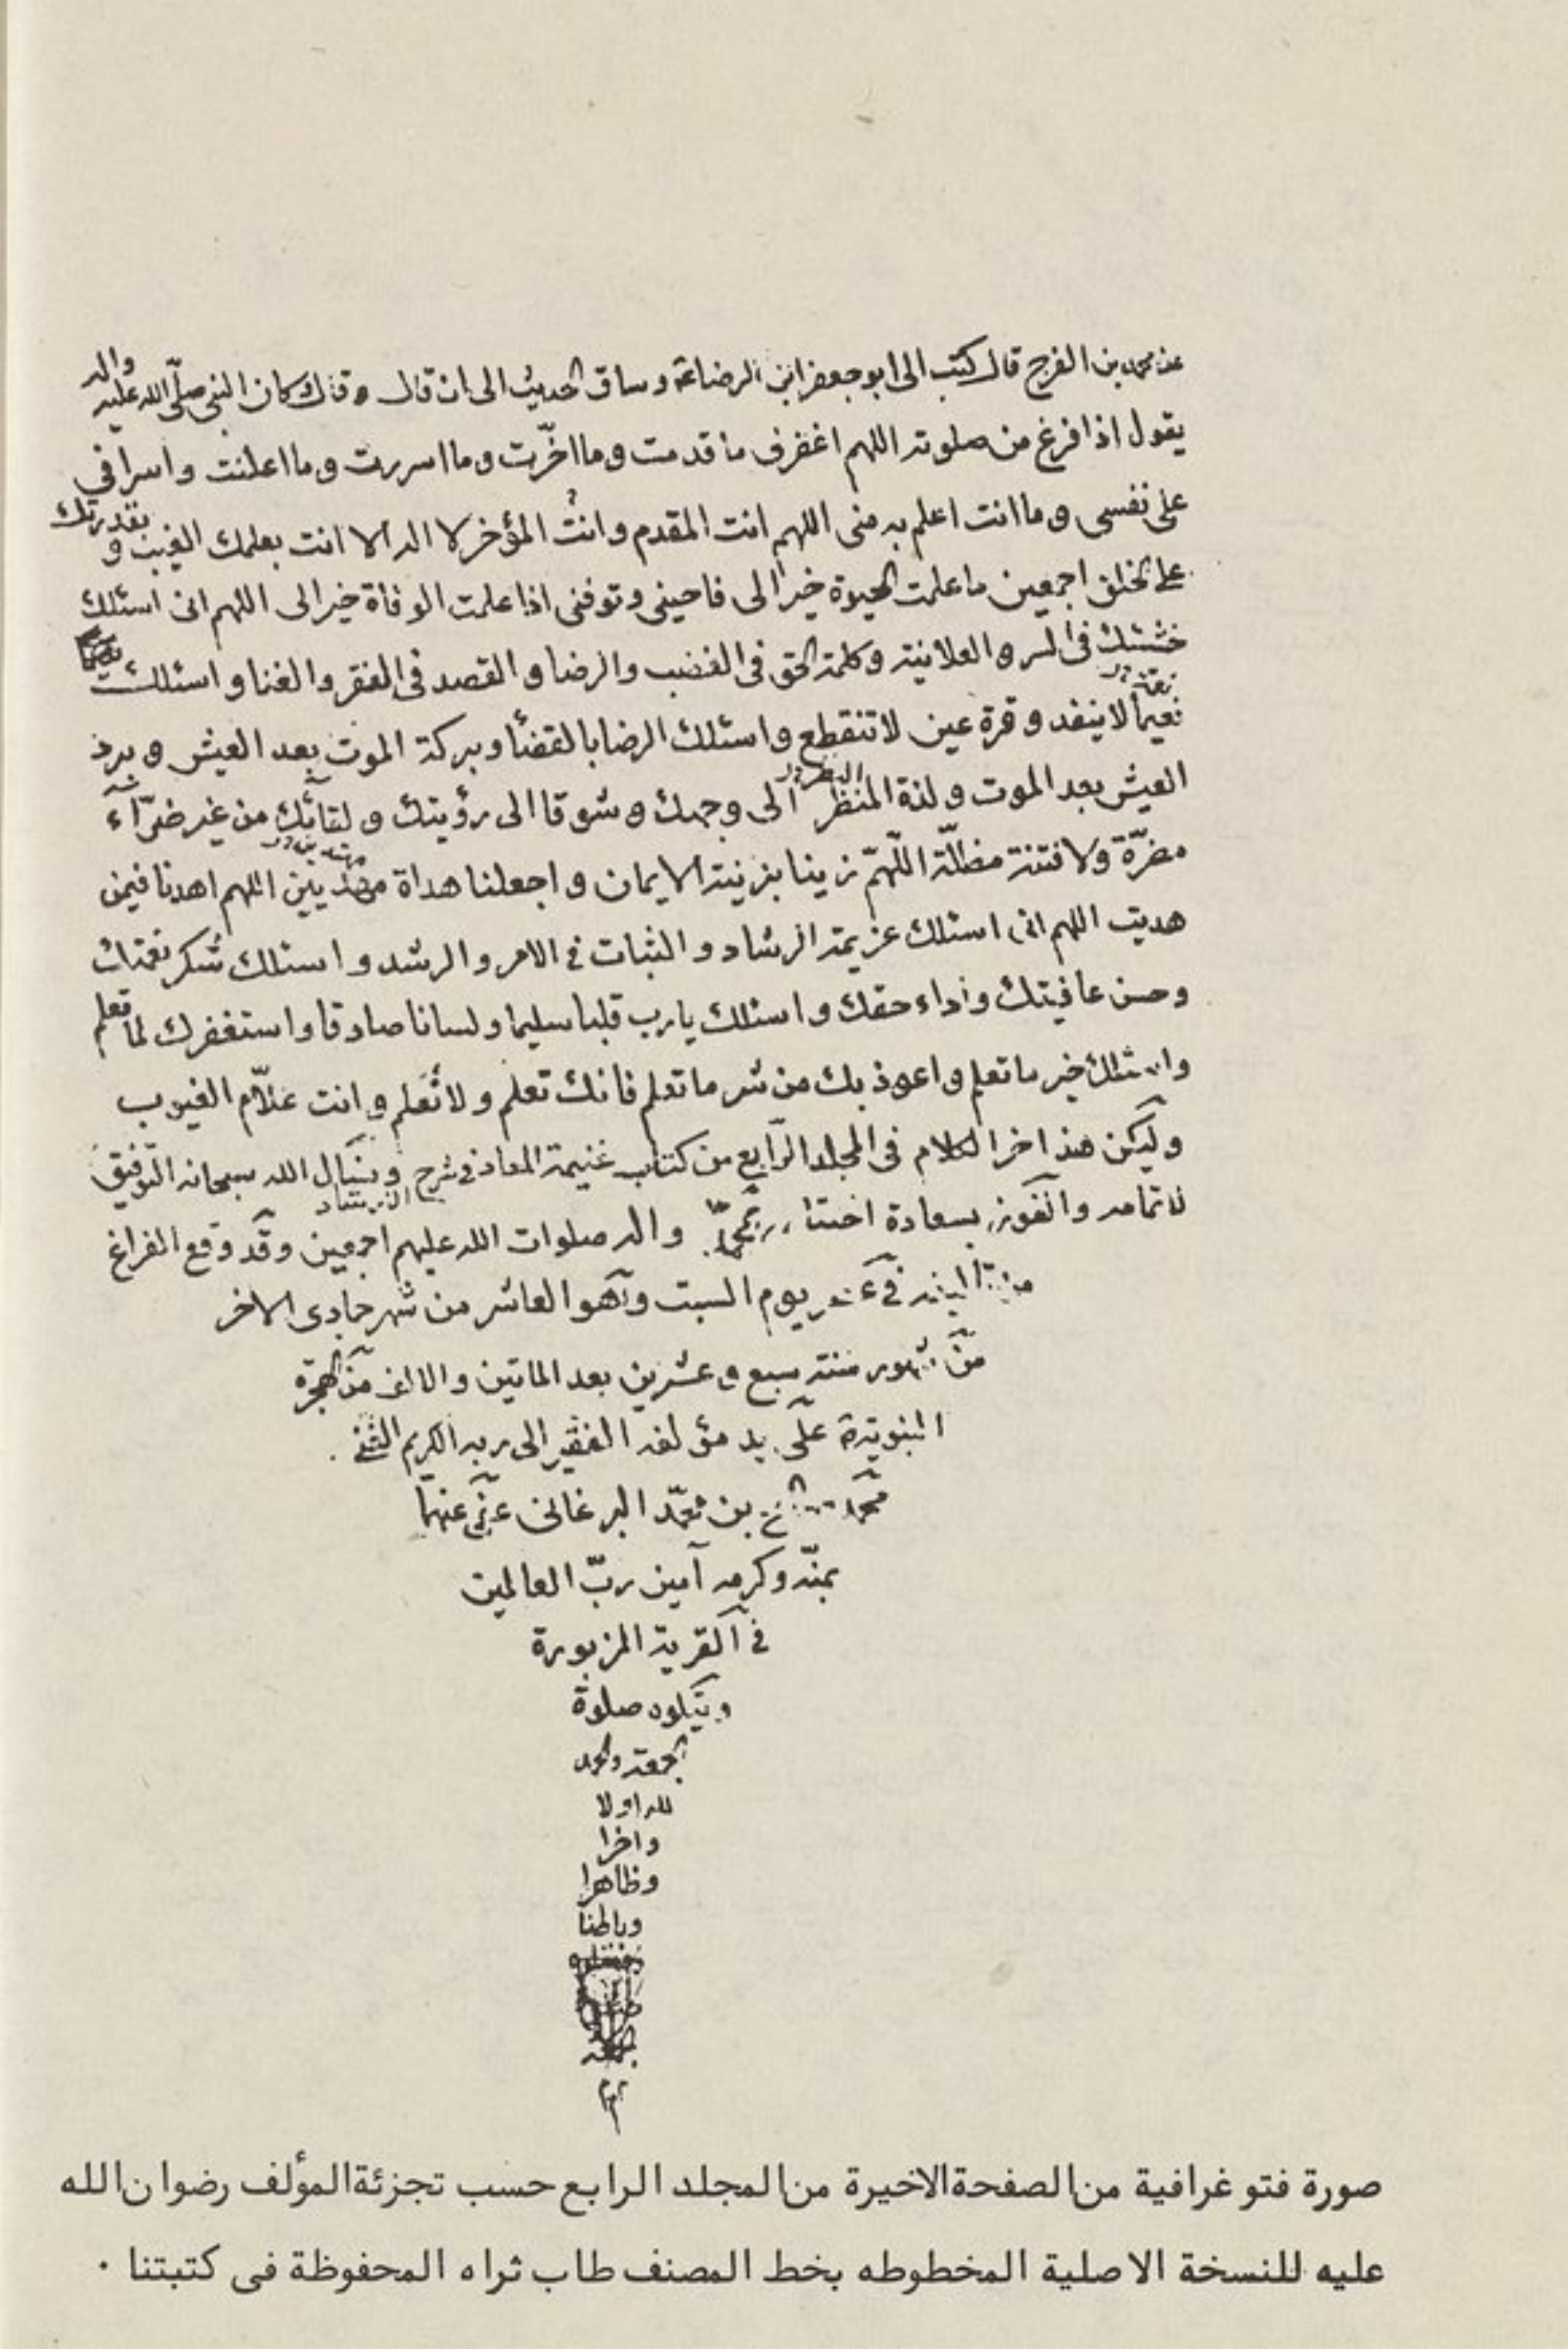 عن محمد بن الفرج قال كتب الى ابو جعفر ابن الرضا ع وساق الحديث الى ان قال وقال كان النبي صلّى الله عليه واله
يقول اذا فرغ من صلوته اللهم اغفرلى ما قدمت وما اخّرت وما اسررت وما اعلنت واسرافى
على نفسى وما انت اعلم به منى اللهم انت المقدم وانت المؤخر لا اله الا انت بعلمك الغيب وبقدرتك
على الخلق اجمعين ما علمت الحيوة خيرا لى فاحينى وتوفنى اذا علمت الوفاة خيرا لى اللهم انى اسئلك
خشيتك فى السر والعلانية وكلمة الحق فى الغضب والرضا والقصد فى الفقر والغنا واسئلك
نعيما لا ينفد وقرة عين لا تنقطع واسئلك الرضا بالقضآ وبركة الموت بعد العيش وبرد
العيش بعد الموت ولذة المنظر الى وجهك وشوقا الى رؤيتك ولقائك من غير ضرّآء
مضرّة ولا فتنة مضلّة اللّهمّ زينا بزينة الايمان واجعلنا هداة مهديين اللهم اهدنا فيمن
هديت اللهم انى اسئلك عزيمة الرشاد والثبات فى الامر والرشد واسئلك شكر نعمتك
وحسن عافيتك واداء حقك واسئلك يا رب قلبا سليما ولسانا صادقا واستغفرك لما تعلم
واسئلك خير ما تعلم واعوذ بك من شر ما تعلم فانك تعلم ولا نُعَلم وانت علّام الغيوب
وليكن هذا اخر الكلام فى المجلد الرّابع من كتاب غنيمة المعاد فى شرح الارشاد ونسئال الله سبحانه التّوفيق
لاتمامه والفوز بسعادة اختتامه بمحمّد واله صلوات الله عليهم اجمعين وقد وقع الفراغ
فى يوم السبت وهو العاشر من شهر جمادى الاخر
من شهور سنة سبع وعشرين بعد الماتين والالف من الهجرة
النبوية على يد مؤلفه الفقير الى ربه الكريم
محمد بن محمّد البرغانى عفى عنهما
بمنّه وكرمه آمين ربّ العالمين
فى القرية المزبورة
ويتلوه صلوة
الجمعة والحمد
لله اولا
واخرا
وظاهرا
وباطنا
صورة فتوغرافية من الصفحة الاخيرة من المجلد الرابع حسب تجزئة المؤلف رضوان الله
عليه للنسخة الاصلية المخطوطه بخط المصنف طاب ثراه المحفوظة فى كتبتنا ۰